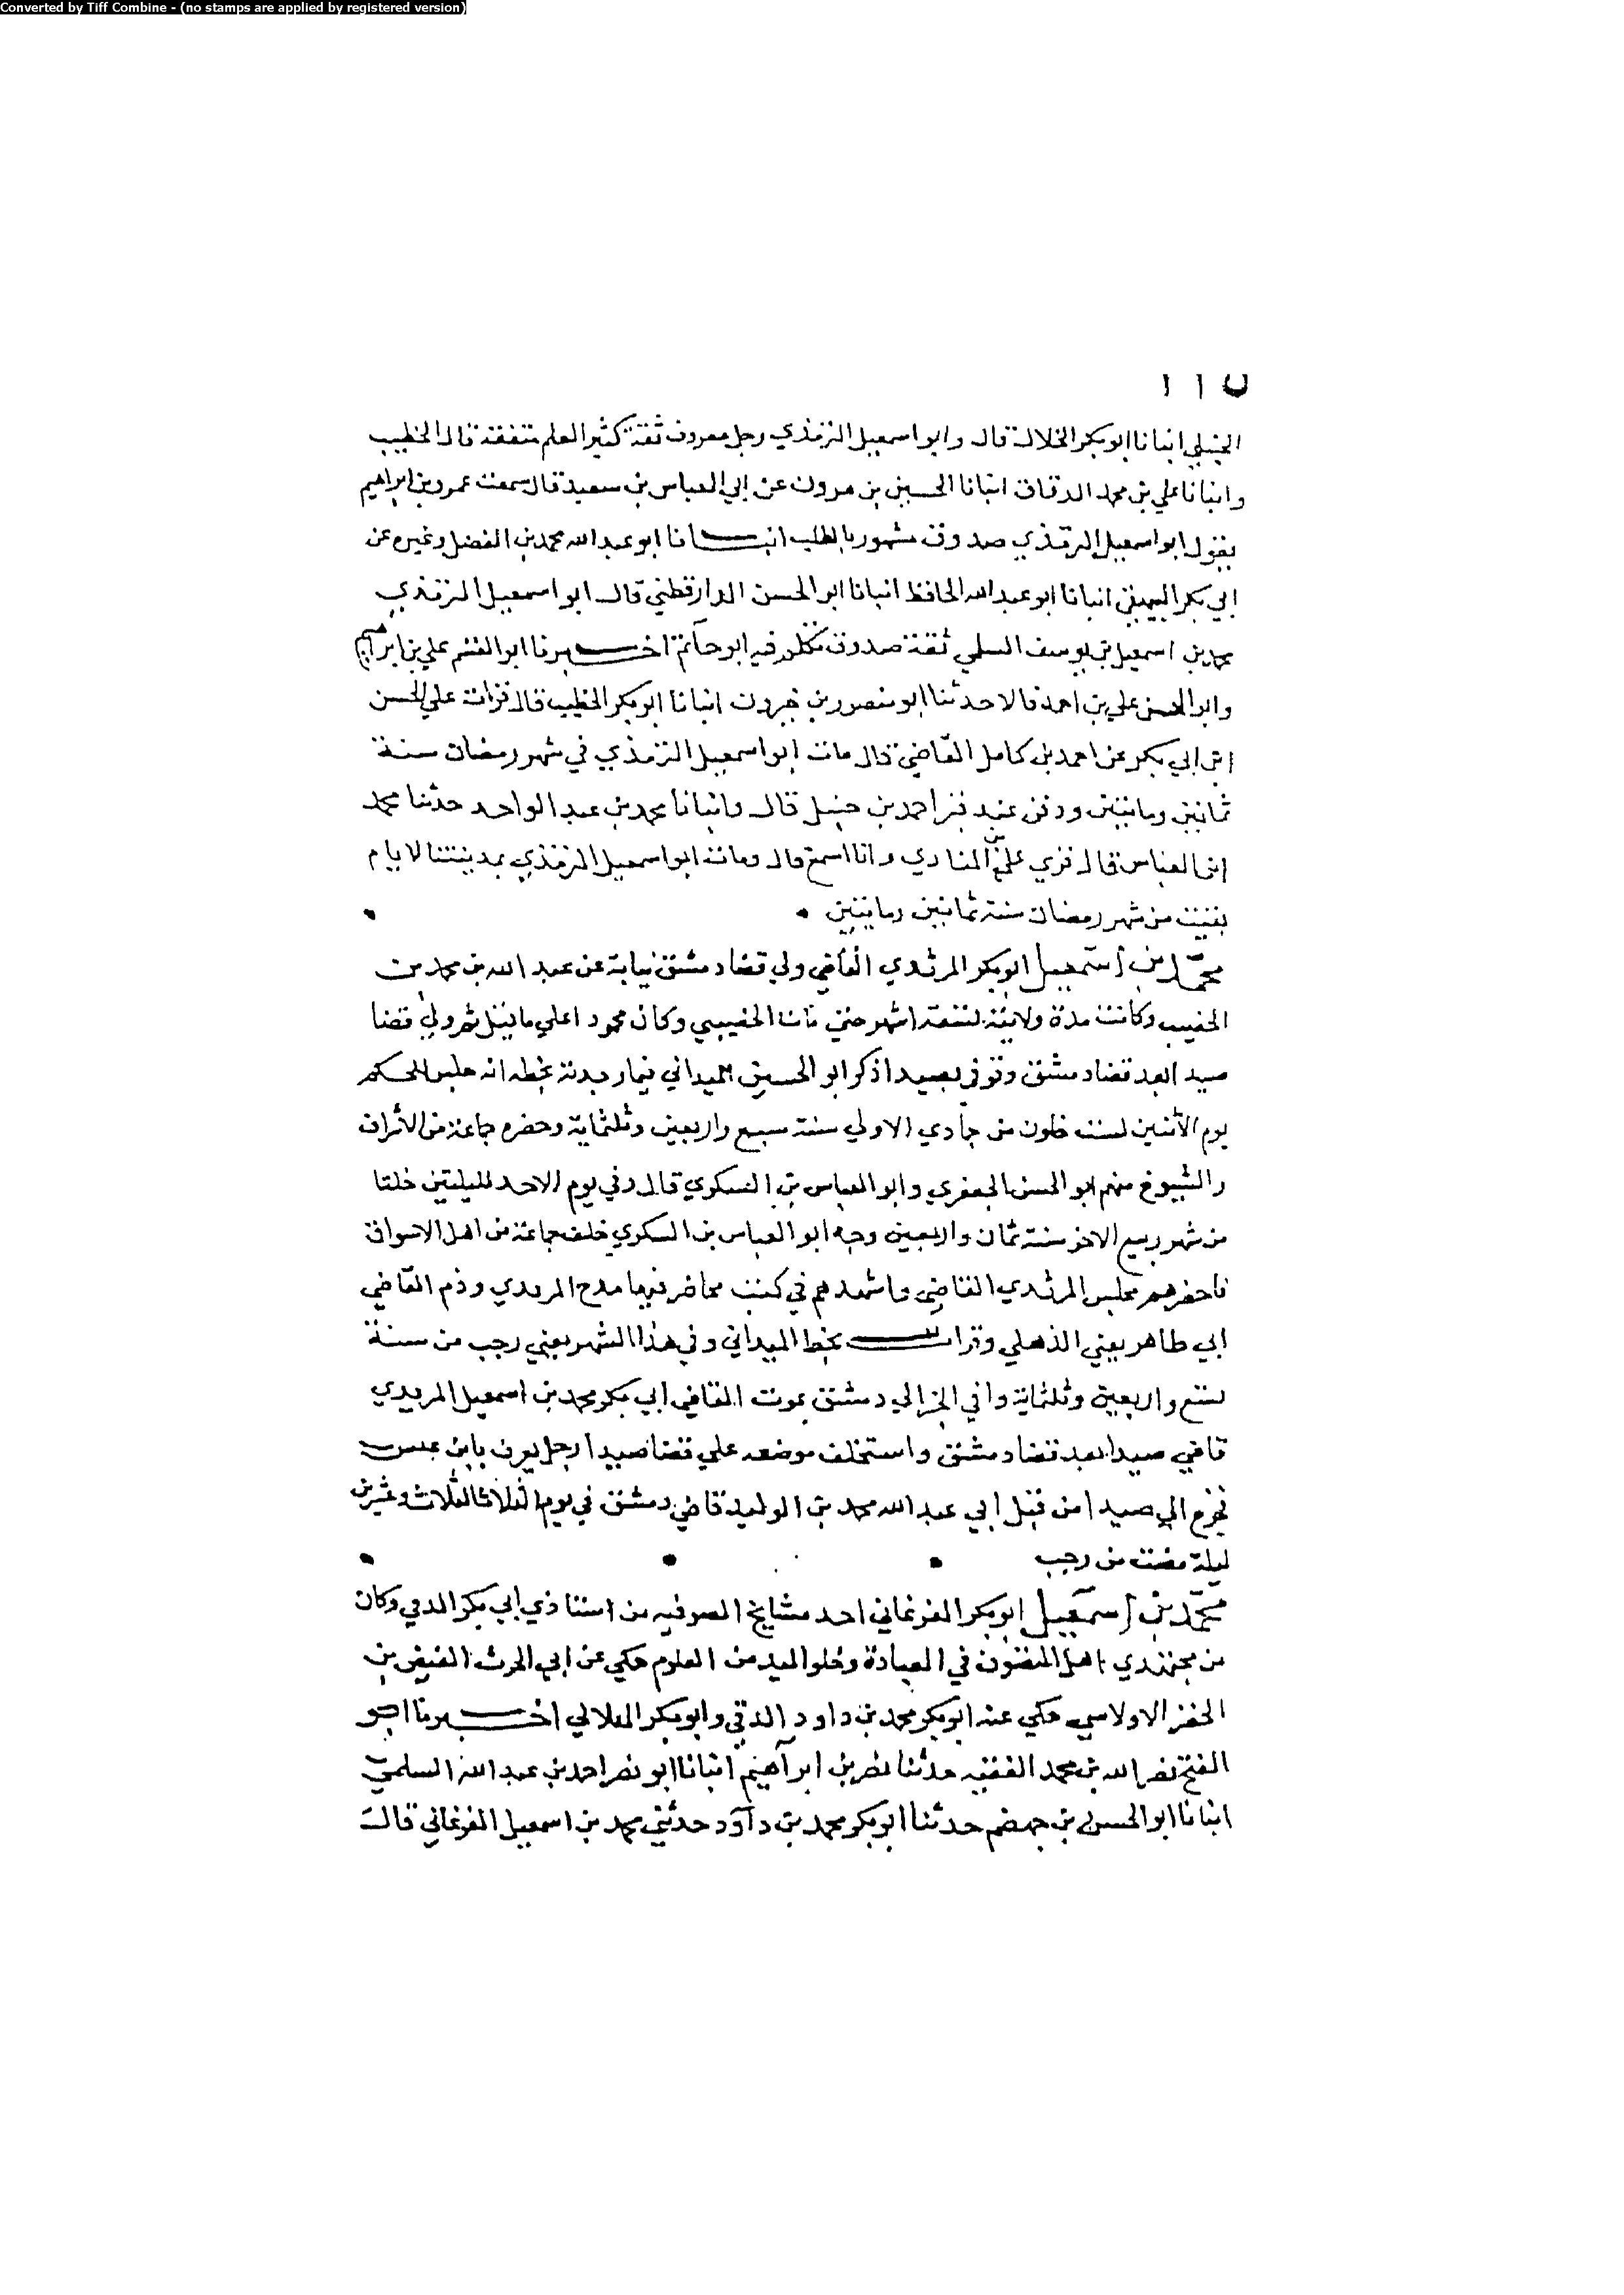 Converted by Tiff Combine - (no stamps are applied by registered version)
١١٥
الحنبلي انبانا ابو بكر الخلال قال وابو اسمعيل الترمذي رجل معروف ثقة كثير العلم متفقه قال الخطيب
وانبانا علي بن محمد الدقاق انبانا الحسين بن هرون عن ابي العباس بن سعيد قال سمعت عمر بن ابراهيم
يقول ابو اسمعيل الترمذي صدوق مشهور بالطلب انبانا ابو عبد الله محمد بن الفضل وغيره عن
ابي بكر البيهقي انبانا ابو عبد الله الحافظ انبانا ابو الحسن الدارقطني قال ابو اسمعيل الترمذي
محمد بن اسمعيل بن يوسف السلمي ثقة صدوق تكلم فيه ابو حاتم اخبرنا ابو القسم علي بن ابراهيم
وابو الحسن علي بن احمد قالا حدثنا ابو منصور بن خيرون انبانا ابو بكر الخطيب قال قرات علي الحسن
ابن ابي بكر عن احمد بن كامل القاضي قال مات ابو اسمعيل الترمذي في شهر رمضان سنة
ثمانين وماتين ودفن عند قبر احمد بن حنبل قال وانبانا محمد بن عبد الواحد حدثنا محمد
ابن العباس قال قري علي بن المنادي وانا اسمع قال ومات ابو اسمعيل الترمذي بمدينتنا لايام
بقيت من شهر رمضان سنة ثمانين وماتين
محمد بن اسمعيل ابو بكر المرثدي القاضي ولي قضا دمشق نيابة عن عبد الله بن محمد بن
الخصيب وكانت مدة ولايته تسعة اشهر حتى مات الخصيبي وكان محمودا علي ما قيل ثم ولي قضا
صيدا بعد قضا دمشق وتوفي بصيدا ذكر ابو الحسين الميداني فيما وجدته بخطه انه جلس للحكم
يوم الاثنين لست خلون من جمادي الاولي سنة سبع واربعين وثلثماية وحضره جماعة من الاشراف
والشيوخ منهم ابو الحسن الجعفري وابو العباس بن السكري قال وفي يوم الاحد لليلتين خلتا
من شهر ربيع الاخر سنة ثمان واربعين وجه ابو العباس بن السكري خلف جماعة من اهل الاسواق
فاحضرهم مجلس المرثدي القاضي واشهدهم في كتب محاضر فيها مدح المريدي وذم القاضي
ابي طاهر يعني الذهلي وقرات بخط الميداني وفي هذا الشهر يعني رجب من سنة
تسع واربعين وثلثماية وافي الخبر الي دمشق بموت القاضي ابي بكر محمد بن اسمعيل المريدي
قاضي صيدا بعد قضا دمشق واستخلف موضعه علي قضا صيدا رجل يعرف بابن عبس
فخرج الي صيدا من قبل ابي عبد الله محمد بن الوليد قاضي دمشق في يوم الثلاثا لثلاث وعشرين
ليلة مضت من رجب
محمد بن اسمعيل ابو بكر الفرغاني احد مشايخ الصوفيه من استاذي ابي بكر الدقي وكان
من مجتهدي اهل التصوف في العبادة وخلو اليد من العلوم حكي عن ابي الحرث الفيض بن
الخضر الاولاسي حكي عنه ابو بكر محمد بن داود الدقي وابو بكر الهلالي اخبرنا ابو
الفتح نصر الله بن محمد الفقيه حدثنا نصر بن ابراهيم انبانا ابو نصر احمد بن عبد الله السلمي
انبانا ابو الحسن بن جهضم حدثنا ابو بكر محمد بن داود حدثني محمد بن اسمعيل الفرغاني قال